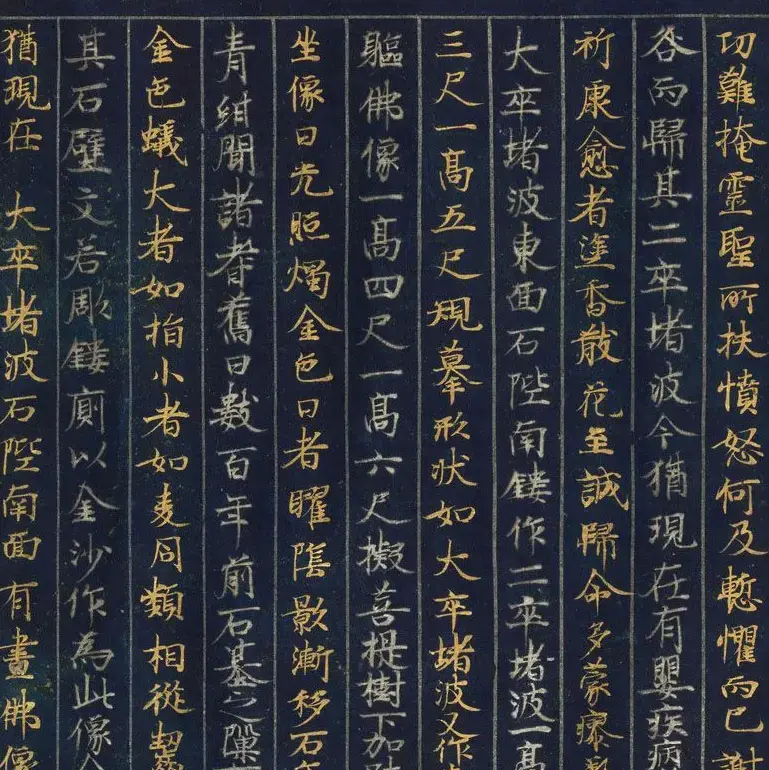 切難掩靈聖所扶憤怒何及慙懼而已謝
咎而歸其二卒堵波今猶現在有嬰疾病
祈康愈者塗香散花至誠歸命多蒙瘳
大卒堵波東面石陛南鏤作二卒堵波一高
三尺一高五尺規摹形状如大卒堵波又作
軀佛像一高四尺一高六尺擬菩提樹下加趺
坐像日光照燭金色日者曜陰影漸移石
青紺聞諸耆舊曰數百年前石基之隟
金色蟻大者如指小者如麦同類相從齧
其石壁文若彫鏤廁以金沙作為此像今
猶現在 大卒堵波石陛南面有畫佛像